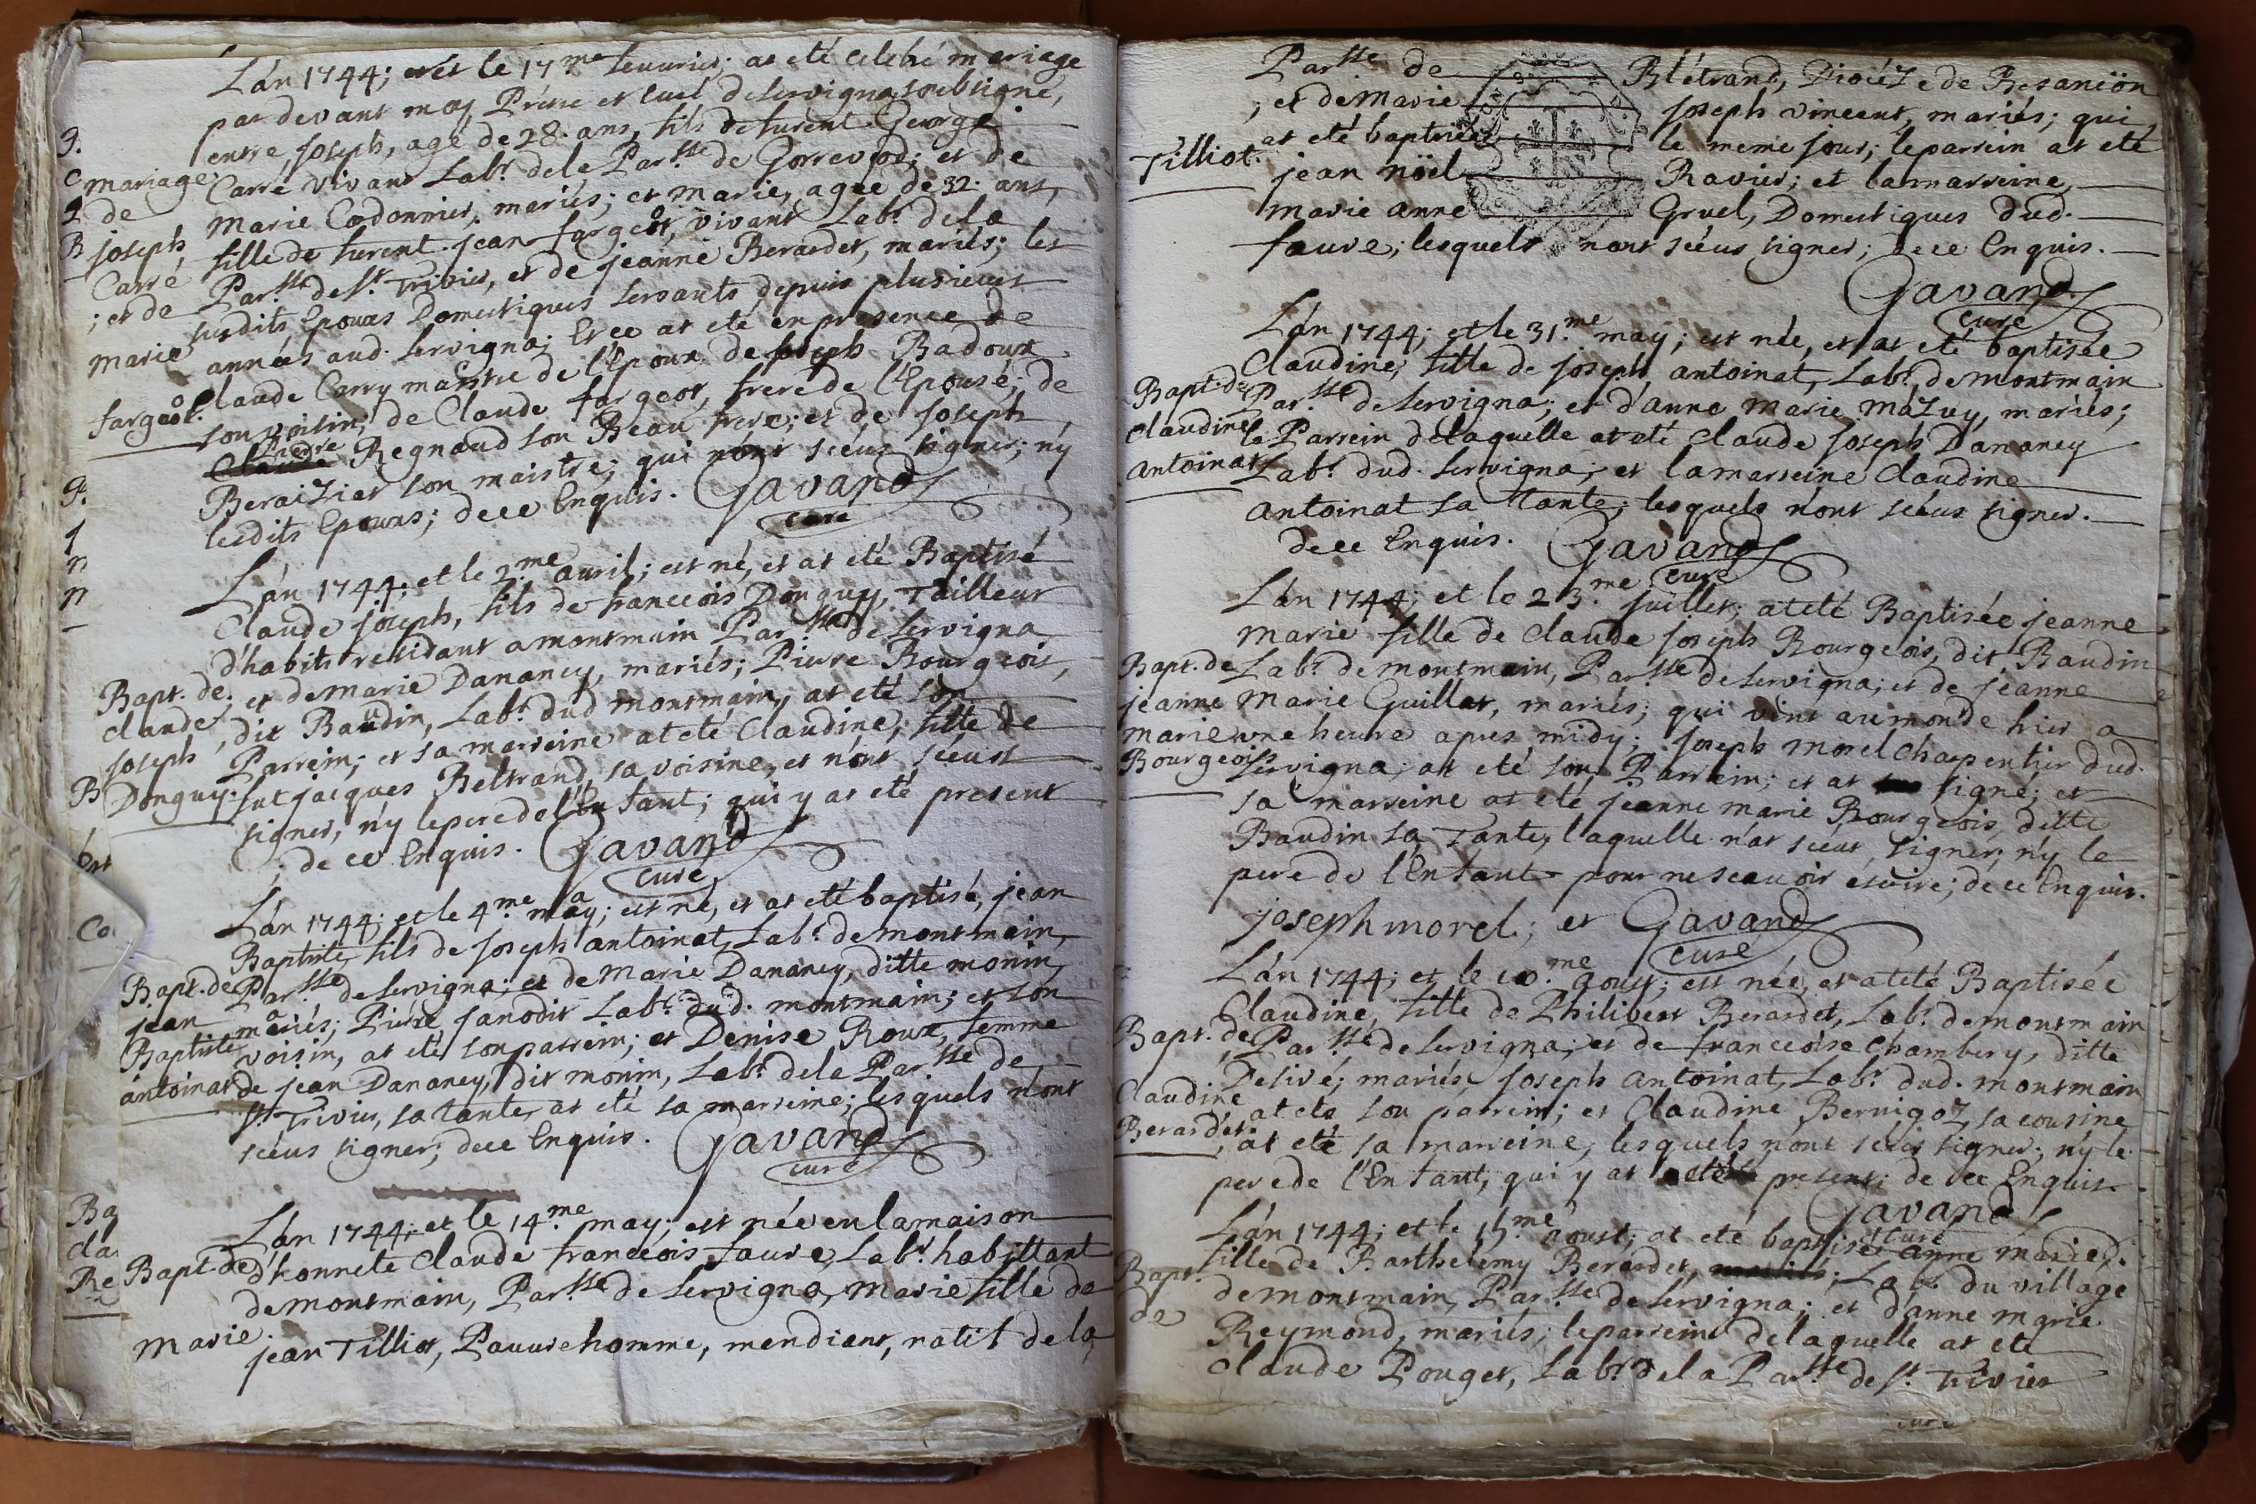 L'an 1744; et est le 17.me feuurier; at eté celebré mariage
par devant moy, Prétre et curé de servigna soubsigné,
entre joseph, agé de 28. ans, fils de furent George
Carré vivant Lab.r dela Par.sse de Gorrevod; et de
Marie Cordonnier, mariés; et marie, agée de 32. ans,
fille de furent jean fargeot, vivant Lab.r de la
Par.sse de S.t Trivier, et de jeanne Berardet, mariés; les
susdits Epoux Domestiques servants depuis plusieurs
années aud. servigna; Et ce at eté en presence de
Claude Carry maistre de l'Epoux de joseph Badoux
son voisin; de Claude fargeot, frere de l'Epouse; de
Pierre Regnaud son Beau frere; et de joseph
Beraizier son maistre; qui n'ont scéus signer; n'y
lesdits Epouxs; de ce Enquis. Gavand
curé
mariage
de
joseph
Carré
; et de
marie
fargeot.
L'an 1744; et le 2.me auril; est né, et at eté Baptisé
Claude joseph, fils de franceois Donguy, Tailleur
d'habits residant a montmain Par.sse de servigna
; et de marie Dananey, mariés; Pierre Bourgeois,
dit Baudin, Lab.r dud montmain, at eté son
Parrein; et sa marreine at eté Claudine, fille de
fut jacques Beltrand, sa voisine, et n'ont scéust
signer, n'y le pere de l'Enfant; qui y at eté present
; de ce Enquis. Gavand
curé
Bapt. de
claude
joseph
Donguy.
L'an 1744; et le 4.me may; est né, et at eté baptisé, jean
Baptiste, fils de joseph antoinat, Lab.r de montmain,
Par.sse de servigna; et de Marie Dananey, ditte monin,
mariés; Pierre janodit Lab.r dud. montmain; et son
voisin, at eté son parrein; et Denise Roux, femme
de jean Dananey, dit monin, Lab.r dela Par.sse de
S.t Trivier, sa tante, at eté sa marreine; lesquels n'ont
scéus signer; de ce Enquis. Gavand
curé
Bapt. de
jean
Baptiste
antoinat
L'an 1744; et le 14.me may; est née en la maison
d'honnete Claude franceois faure, Lab.r habittant
de montmain, Par.sse de servigna, marie fille de
jean Tilliot, Pauure homme, mendiant, natif de la
Bapt. de
marie
Par.sse de Blétrand, Diocéze de Besançon
; et de marie joseph vincent, mariés; qui
at eté baptisée le meme jour; le parrein at eté
jean nöel Ravier; et la marreine,
marie anne Gruel, Domestiques dud.
faure; lesquels n'ont scéus signer; de ce Enquis.
Gavand
curé
Tilliot.
L'an 1744; et le 31.me may; est née, et at eté baptisée
Claudine, fille de joseph antoinat, Lab.r de montmain
Par.sse de servigna; et d'anne marie Mazuy, mariés;
le Parrein delaquelle at eté claude joseph Dananey
Lab.r dud. servigna; et la marreine Claudine
antoinat sa Tante; lesquels n'ont scéus signer.
de ce Enquis. Gavand
curé
Bapt. de
claudine
antoinat
L'an 1744; et le 23.me juillet; at eté Baptisée jeanne
marie fille de Claude joseph Bourgeois, dit Baudin
Lab.r de montmain, Par.sse de servigna; et de jeanne
Marie Guillat, mariés; qui vint au monde hier a
une heure apres midy; joseph morel charpentier dud.
servigna; at eté son Parrein; et at signé; et
sa marreine at eté jeanne marie Bourgeois, ditte
Baudin sa Tante, laquelle n'at scéut signer; n'y le
pere de l'Enfant pour ne sceavoir escrire; de ce Enquis.
joseph morel; et Gavand
curé
Bapt. de
jeanne
marie
Bourgeois
L'an 1744; et le 10.me aoust; est née, et at eté Baptisée
Claudine, fille de Philibert Berardet, Lab.r de montmain
, Par.sse de servigna; et de franceoise Chambery, ditte
Desivé; mariés, joseph antoinat, Lab.r dud. montmain
at eté son parrein; et Claudine Bernigoz, sa cousine
, at eté sa marreine, lesquels n'ont scéus signer; n'y le
pere de l'Enfant, qui y at eté present; de ce Enquis.
Gavand
curé
Bapt. de
Claudine
Berardet
L'an 1744; et le 15.me aoust; at eté baptisée anne marie,
fille de Barthelemy Berardet, Lab.r du village
de montmain, Par.sse de servigna; et d'anne marie
Reymond, mariés; le parrein delaquelle at eté
claude Pouget, Lab.r dela Par.sse de S.t Trivier
Bapt.
de